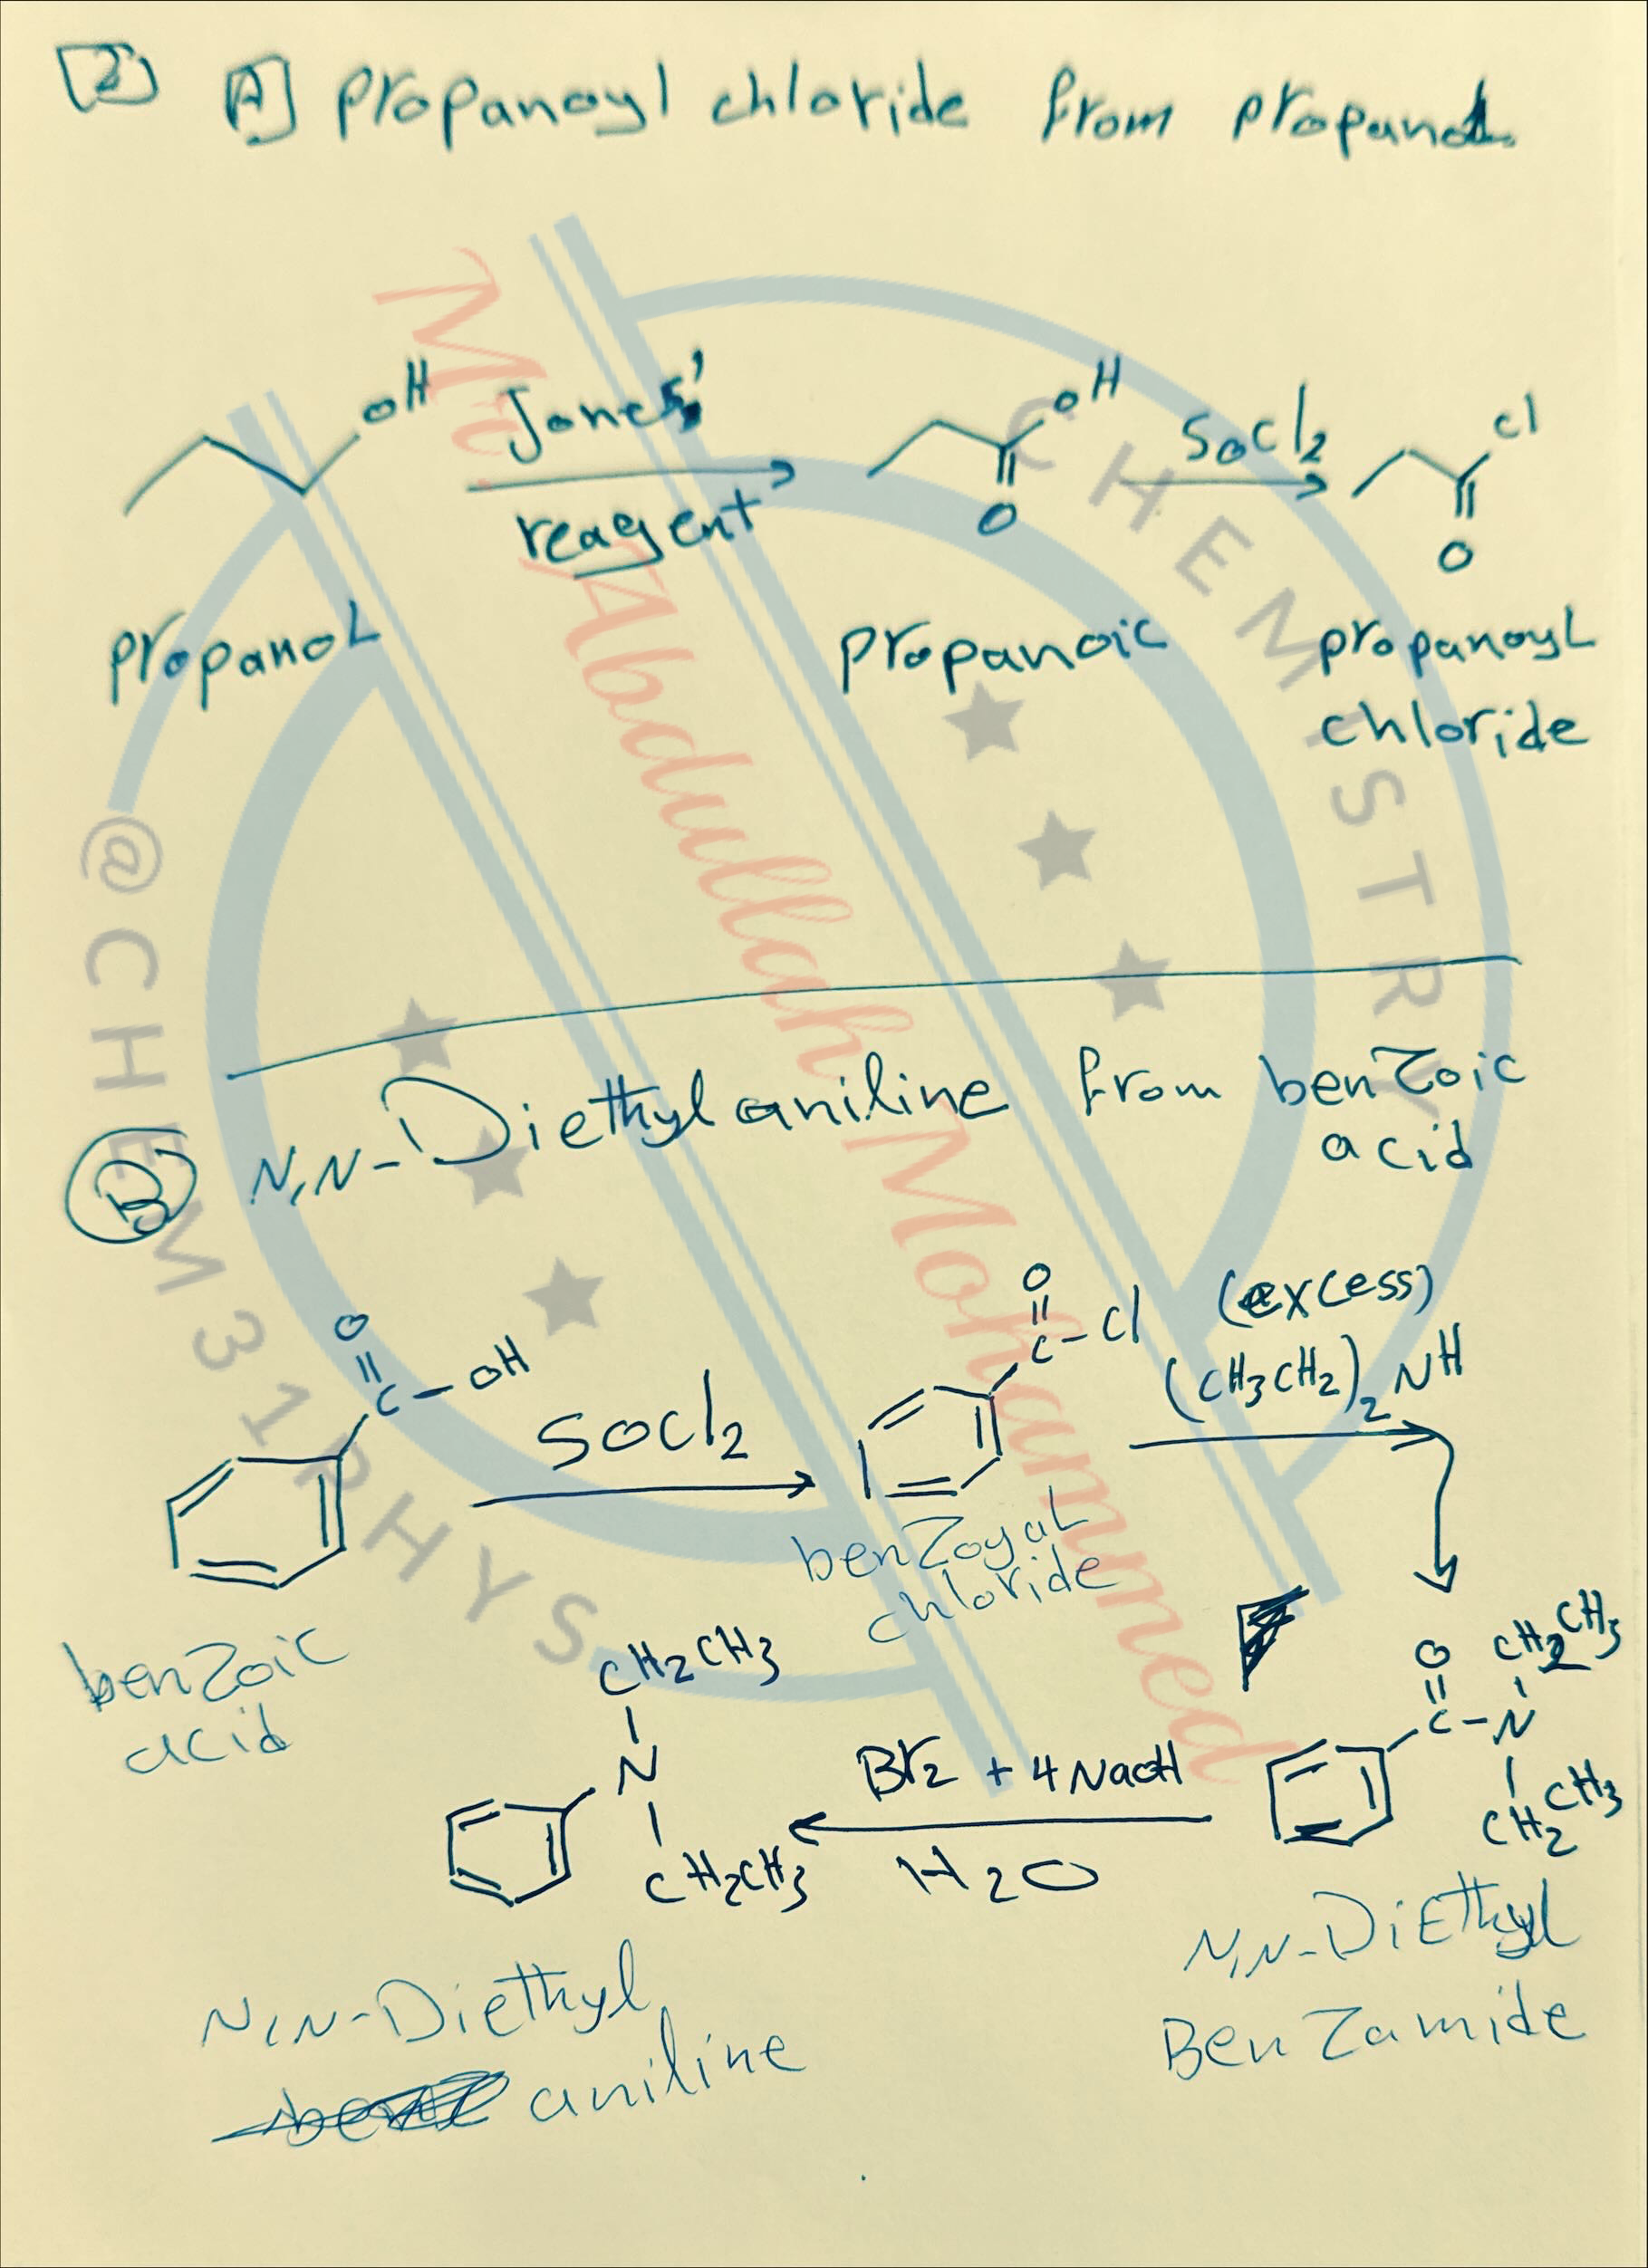 2 A propanoyl chloride from propanol
OH
Jones'
reagent
OH
O
SOCl2
Cl
O
propanol
propanoic
propanoyl
chloride
B N,N-Diethylaniline from benzoic
acid
O
C-OH
SOCl2
O
C-Cl
(excess)
(CH3CH2)2NH
benzoyal
chloride
benzoic
acid
CH2CH3
N
CH2CH3
Br2 + 4NaOH
H2O
O
C-N
CH2CH3
CH2CH3
N,N-Diethyl
aniline
N,N-Diethyl
Benzamide
Mo/Abdullah Mohammed
CHEMISTRY
@CHEM31PHYS